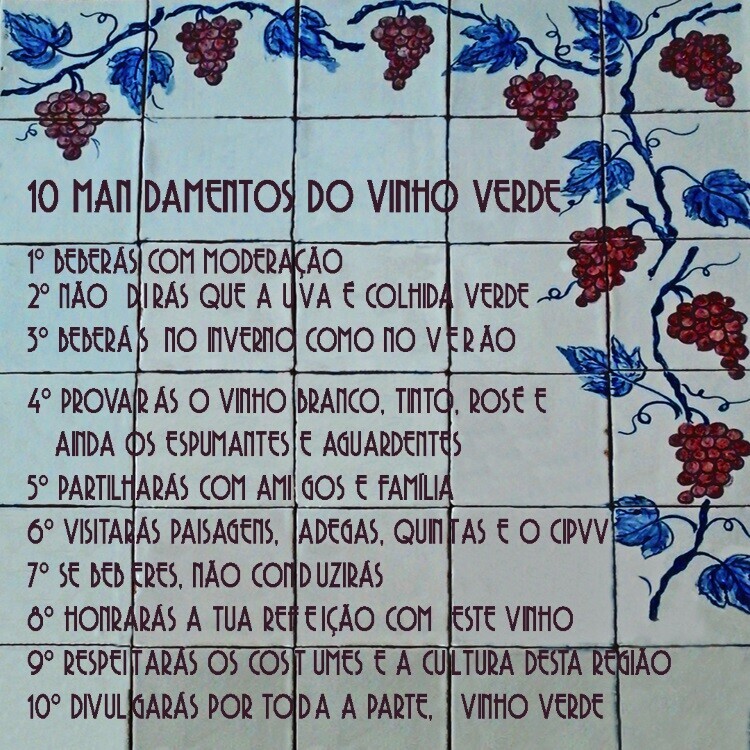 10 MANDAMENTOS DO VINHO VERDE
1º BEBERÁS COM MODERAÇÃO
2º NÃO DIRÁS QUE A UVA É COLHIDA VERDE
3º BEBERÁS NO INVERNO COMO NO VERÃO
4º PROVARÁS O VINHO BRANCO, TINTO, ROSÉ E
AINDA OS ESPUMANTES E AGUARDENTES
5º PARTILHARÁS COM AMIGOS E FAMÍLIA
6º VISITARÁS PAISAGENS, ADEGAS, QUINTAS E O CIPVV
7º SE BEBERES, NÃO CONDUZIRÁS
8º HONRARÁS A TUA REFEIÇÃO COM ESTE VINHO
9º RESPEITARÁS OS COSTUMES E A CULTURA DESTA REGIÃO
10º DIVULGARÁS POR TODA A PARTE, VINHO VERDE